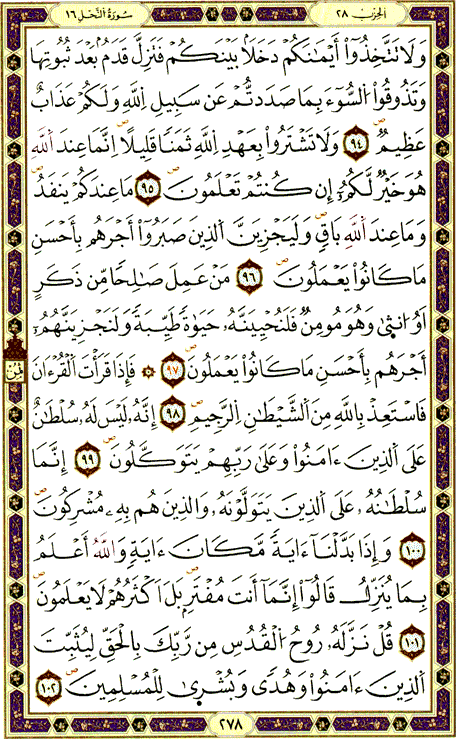 الحزب ٢٨
سورة النحل ١٦
وَلَا تَتَّخِذُوٓا۟ أَيْمَٰنَكُمْ دَخَلًۢا بَيْنَكُمْ فَتَزِلَّ قَدَمٌۢ بَعْدَ ثُبُوتِهَا
وَتَذُوقُوا۟ السُّوٓءَ بِمَا صَدَدتُّمْ عَن سَبِيلِ اِللَّهِ وَلَكُمْ عَذَابٌ
عَظِيمٌ ٩٤ وَلَا تَشْتَرُوا۟ بِعَهْدِ اِللَّهِ ثَمَنًا قَلِيلًا اِنَّمَا عِندَ اَللَّهِ
هُوَ خَيْرٌ لَّكُمُۥٓ إِن كُنتُمْ تَعْلَمُونَ ٩٥ مَا عِندَكُمْ يَنفَدُ
وَمَا عِندَ اَللَّهِ بَاقٍ وَلَيَجْزِيَنَّ اَلذِينَ صَبَرُوٓا۟ أَجْرَهُم بِأَحْسَنِ
مَا كَانُوا۟ يَعْمَلُونَ ٩٦ مَنْ عَمِلَ صَٰلِحًا مِّن ذَكَرٍ
اَوُ انث۪يٰ وَهُوَ مُومِنٌ فَلَنُحْيِيَنَّهُۥ حَيَوٰةً طَيِّبَةً وَلَنَجْزِيَنَّهُمُۥٓ
أَجْرَهُم بِأَحْسَنِ مَا كَانُوا۟ يَعْمَلُونَ ٩٧ ۞ فَإِذَا قَرَأْتَ اَلْقُرْءَانَ
فَاسْتَعِذْ بِاللَّهِ مِنَ اَلشَّيْطَٰنِ اِلرَّجِيمِ ٩٨ إِنَّهُۥ لَيْسَ لَهُۥ سُلْطَٰنٌ
عَلَى اَلذِينَ ءَامَنُوا۟ وَعَلَىٰ رَبِّهِمْ يَتَوَكَّلُونَ ٩٩ إِنَّمَا
سُلْطَٰنُهُۥ عَلَى اَلذِينَ يَتَوَلَّوْنَهُۥ وَالذِينَ هُم بِهِۦ مُشْرِكُونَ
١٠٠ وَإِذَا بَدَّلْنَآ ءَايَةً مَّكَانَ ءَايَةٍ وَاللَّهُ أَعْلَمُ
بِمَا يُنَزِّلُ قَالُوٓا۟ إِنَّمَآ أَنتَ مُفْتَرٍۭ بَلَ اَكْثَرُهُمْ لَا يَعْلَمُونَ
١٠١ قُلْ نَزَّلَهُۥ رُوحُ اُلْقُدُسِ مِن رَّبِّكَ بِالْحَقِّ لِيُثَبِّتَ
اَلذِينَ ءَامَنُوا۟ وَهُدًى وَبُشْر۪يٰ لِلْمُسْلِمِينَ ١٠٢
ثمن
٢٧٨